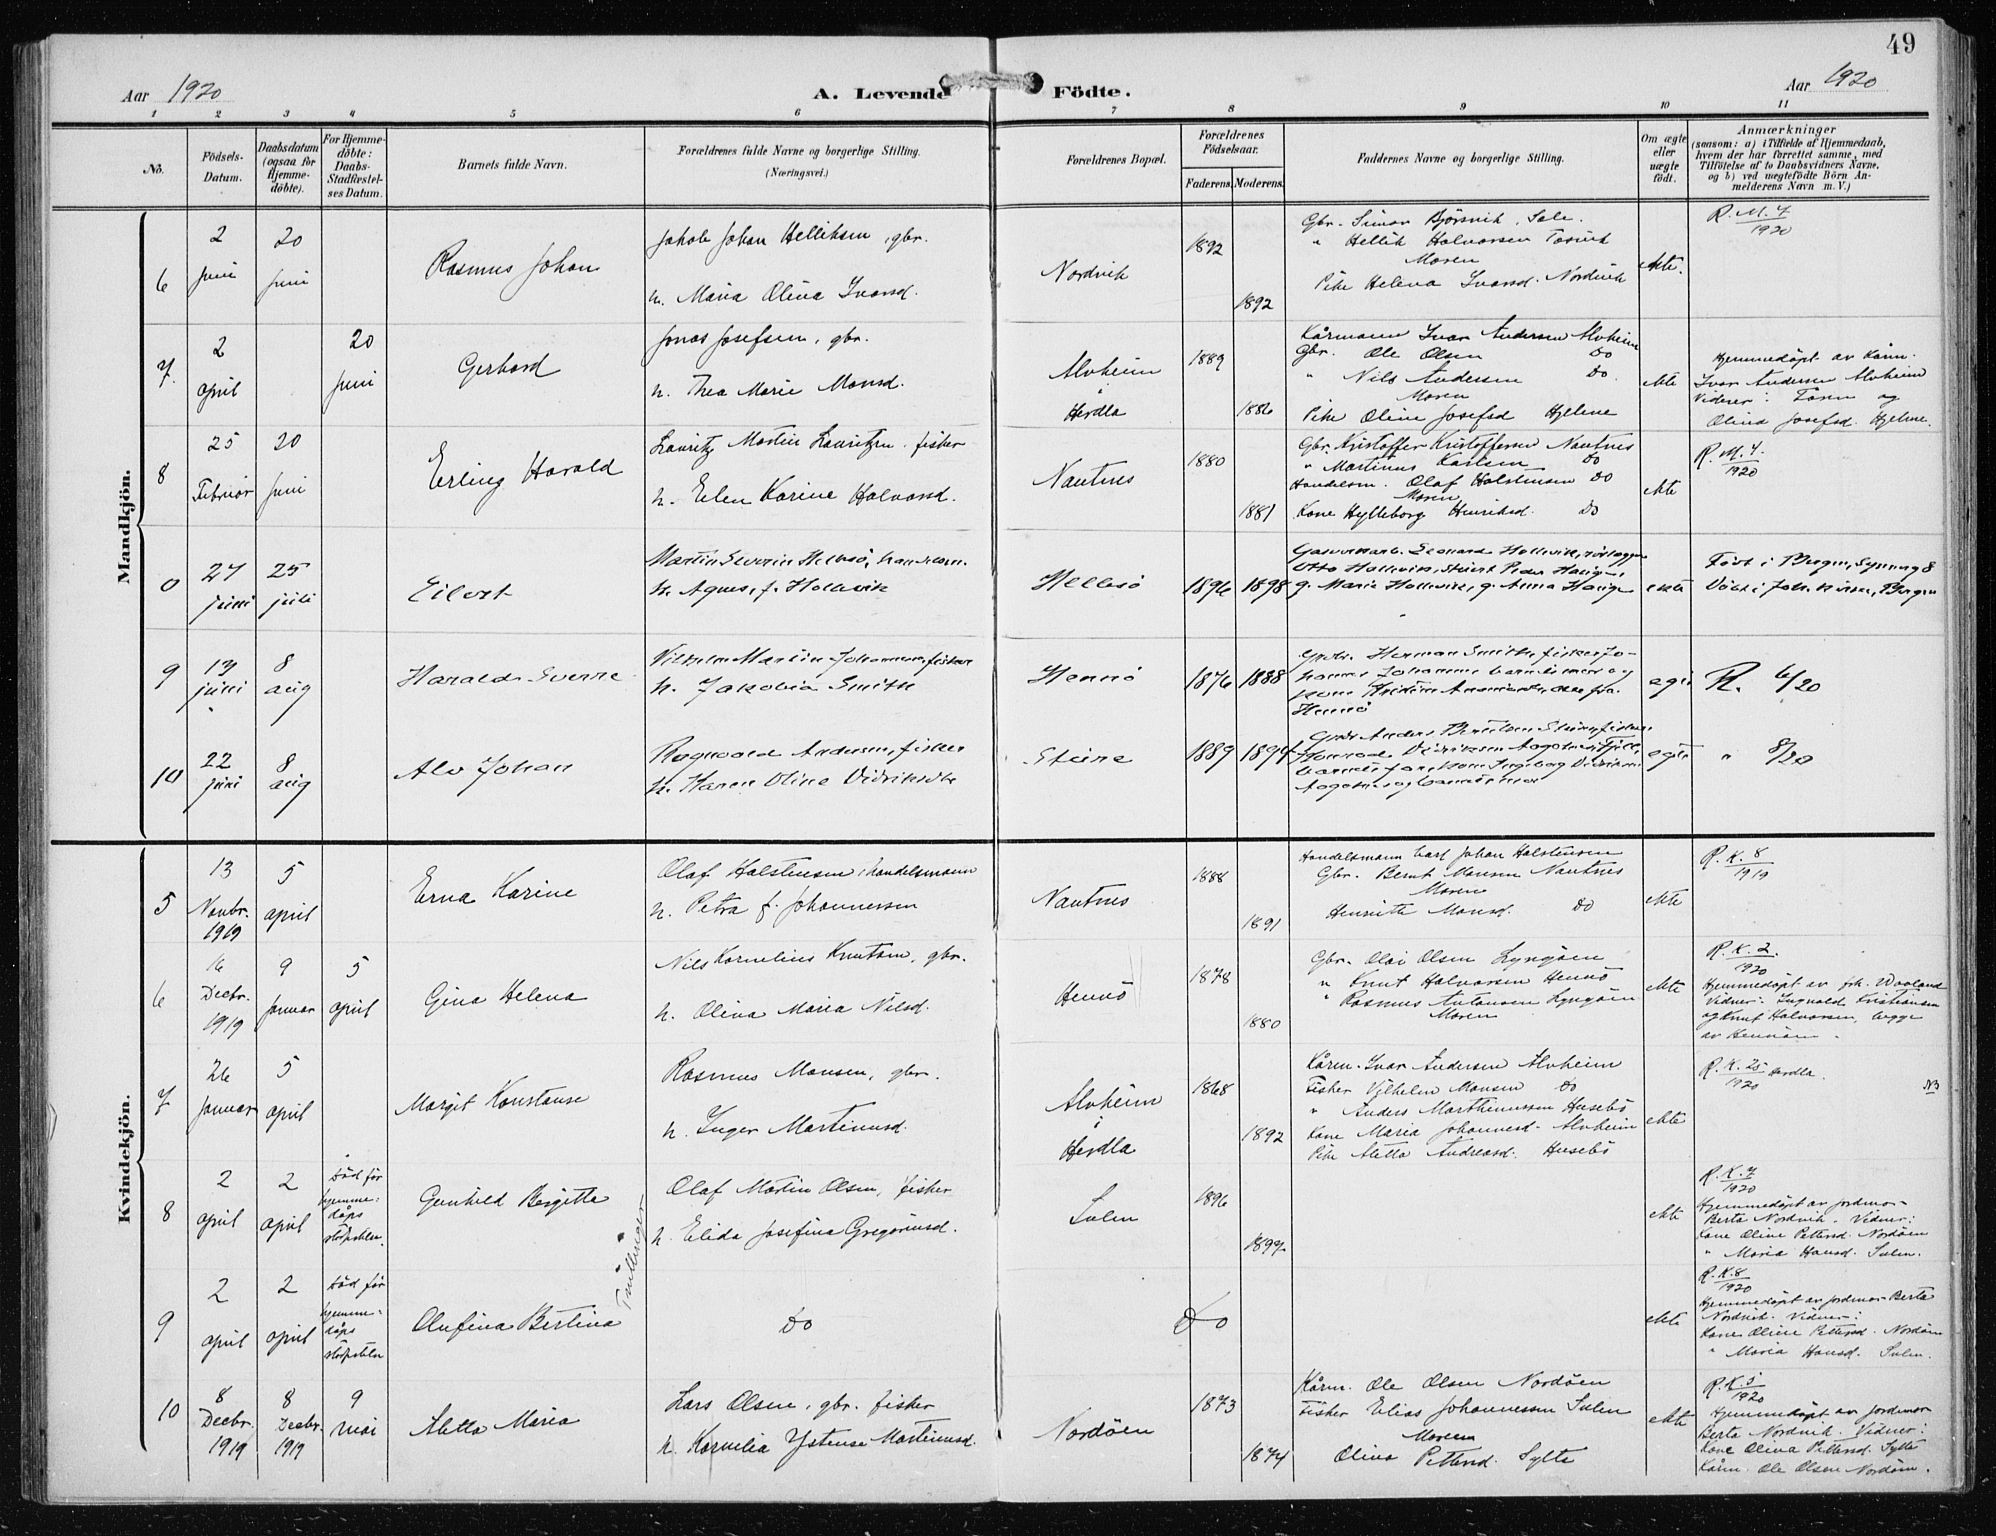 49
Aar 1920
A. Levende Födte.
Aar 1920
1 2 3 4 5 6 7 8 9 10 11
No.
Födsels-
Datum.
Daabsdatum
(ogsaa for
Hjemme-
döbte).
For Hjemme-
döbte:
Daabs-
Stadfæstel-
ses Datum.
Barnets fulde Navn.
Forældrenes fulde Navne og borgerlige Stilling.
(Næringsvei.)
Forældrenes Bopæl.
Forældrenes
Födselsaar.
Faderens. Moderens.
Faddernes Navne og borgerlige Stilling.
Om ægte
eller
uægte
födt.
Anmærkninger
(saasom: a) i Tilfælde af Hjemmedaab,
hvem der har forrettet samme, med
Tilföielse af to Daabsvidners Navne,
og b) ved uægtefödte Börn An-
melderens Navn m. V.)
Mandkjön.
6
2
juni
20
juni
Rasmus Johan
Jakob Johan Helliksen, gbr.
h. Maria Olina Ivarsd.
Nordvik
1892
1892
Gbr. Simon Bjørsvik, Sale.
" Hellik Halvorsen Tosvik
Moren
Pike Helena Ivarsd. Nordvik
ekte.
R. M. 7
1920
7.
2
april
20
juni
Gerhard
Jonas Josefsen, gbr.
h. Thea Marie Monsd.
Alvheim
i
Herdla
1889
1886
Kårmann Ivar Andersen Alvheim
Gbr. Ole Olsen Do
" Nils Andersen Do
Moren
Pike Olina Josefsd Hjelme
ekte
Hjemmedøpt av kårm.
Ivar Andersen Alvheim
Vidner: Faren og
Olina Josefsd. Hjelme.
8
25
Februar
20
juni
Erling Harald
Lauritz Martin Lauritzen, fisker
h. Elen Karine Halvorsd.
Nautnes
1880
1881
Gbr. Kristoffer Kristoffersen Nautnes
" Martinus Karlsen Do
Handelsm. Olaf Halstensen Do
Moren
Kone Hylleborg Henriksd. Do
ekte
R. M. 4.
1920
0
27
juni
25
juli
Eilert
Martin Severin Hellesø, handelsm.
h. Agnes, f. Hollevik
Hellesø
1896
1898
g. Marie Hollevik, g. Anna Hauge
ekte
Født i Bergen,
Døbt i Joh. kirken, Bergen
9
13
juni
8
aug
Harald Sverre
Vilhelm Martin Johannesen, fisker
h. Jakobia Smith
Hennø
1876
1888
Hennø
egte
R. 6/20
10
22
juni
8
aug
Alv Johan
Ragnvald Andersen, fisker
h. Karen Oline Didriksdtr
Sture
1889
1894
egte
" 8/20
Kvindekjön.
5
13
Novbr.
1919
5
april
Erna Karine
Olaf Halstensen, handelsmann
h. Petra f. Johannessen
Nautnes
1888
1891
Handelsmann Carl Johan Halstensen
Gbr. Bernt Monsen Nautnes
Moren
Henritte Monsd. Do
ekte
R. K. 8
1919
6
16
Decbr.
1919
9
Januar
5
april
Gina Helena
Nils Kornelius Knutsen, gbr.
h. Olina Maria Nilsd.
Hennø
1878
1880
Gbr. Olai Olsen Lyngøen
" Knut Halvorsen Hennø
" Rasmus Antonsen Lyngøen
Moren
ekte
R. K. 2.
1920
Hjemmedøpt av frk. Waaland
Vidner: Ingvald Kristiansen
og Knut Halvorsen, begge
av Hennøen.
7
26
Januar
5
april
Margit Konstanse
Rasmus Monsen, gbr.
h. Inger Martinusd.
Alvheim
i
Herdla
1868
1892
Kårm. Ivar Andersen Alvheim
Fisker Vilhelm Monsen Do
" Anders Marthinussen Husebø
Kone Maria Johannesd. Alvheim
Pike Aletta Andreasd. Husebø
ekte
R. K. 25 Herdla.
1920
N3
8
2
april
2
april
død før
hjemme-
dåps
Gunhild Bergitte
Tvillinger
Olaf Martin Olsen, fisker
h. Elida Josefina Gregoriusd.
Sulen
1896
1899
ekte
R. K. 7
1920
Hjemmedøpt av jordmor
Berta Nordvik. Vidner:
Kone Oline Pettersd. Nordøen
" Maria Hansd. Sulen.
9
2
april
2
april
død før
hjemme-
dåps
Olufina Bertina
Do
Do
ekte
R. K. 8
1920
Hjemmedøpt av jordmor Berta
Nordvik. Vidner:
Kone Oline Pettersd. Nordøen
" Maria Hansd. Sulen.
10
8
Decbr.
1919
8
Decbr.
1919
9
mai
Aletta Maria
Lars Olsen, gbr. fisker
h. Kornelia Ystense Martinusd.
Nordøen
1873
1874
Kårm. Ole Olsen Nordøen
Fisker Elias Johannessen Sulen
Moren
Olina Pettersd. Sylta
ekte
R. K. 5
1920
Hjemmedøpt av jordmor
Berta Nordvik. Vidner:
Kone Olina Pettersd. Sylta
Kårm. Ole Olsen Nordøen.